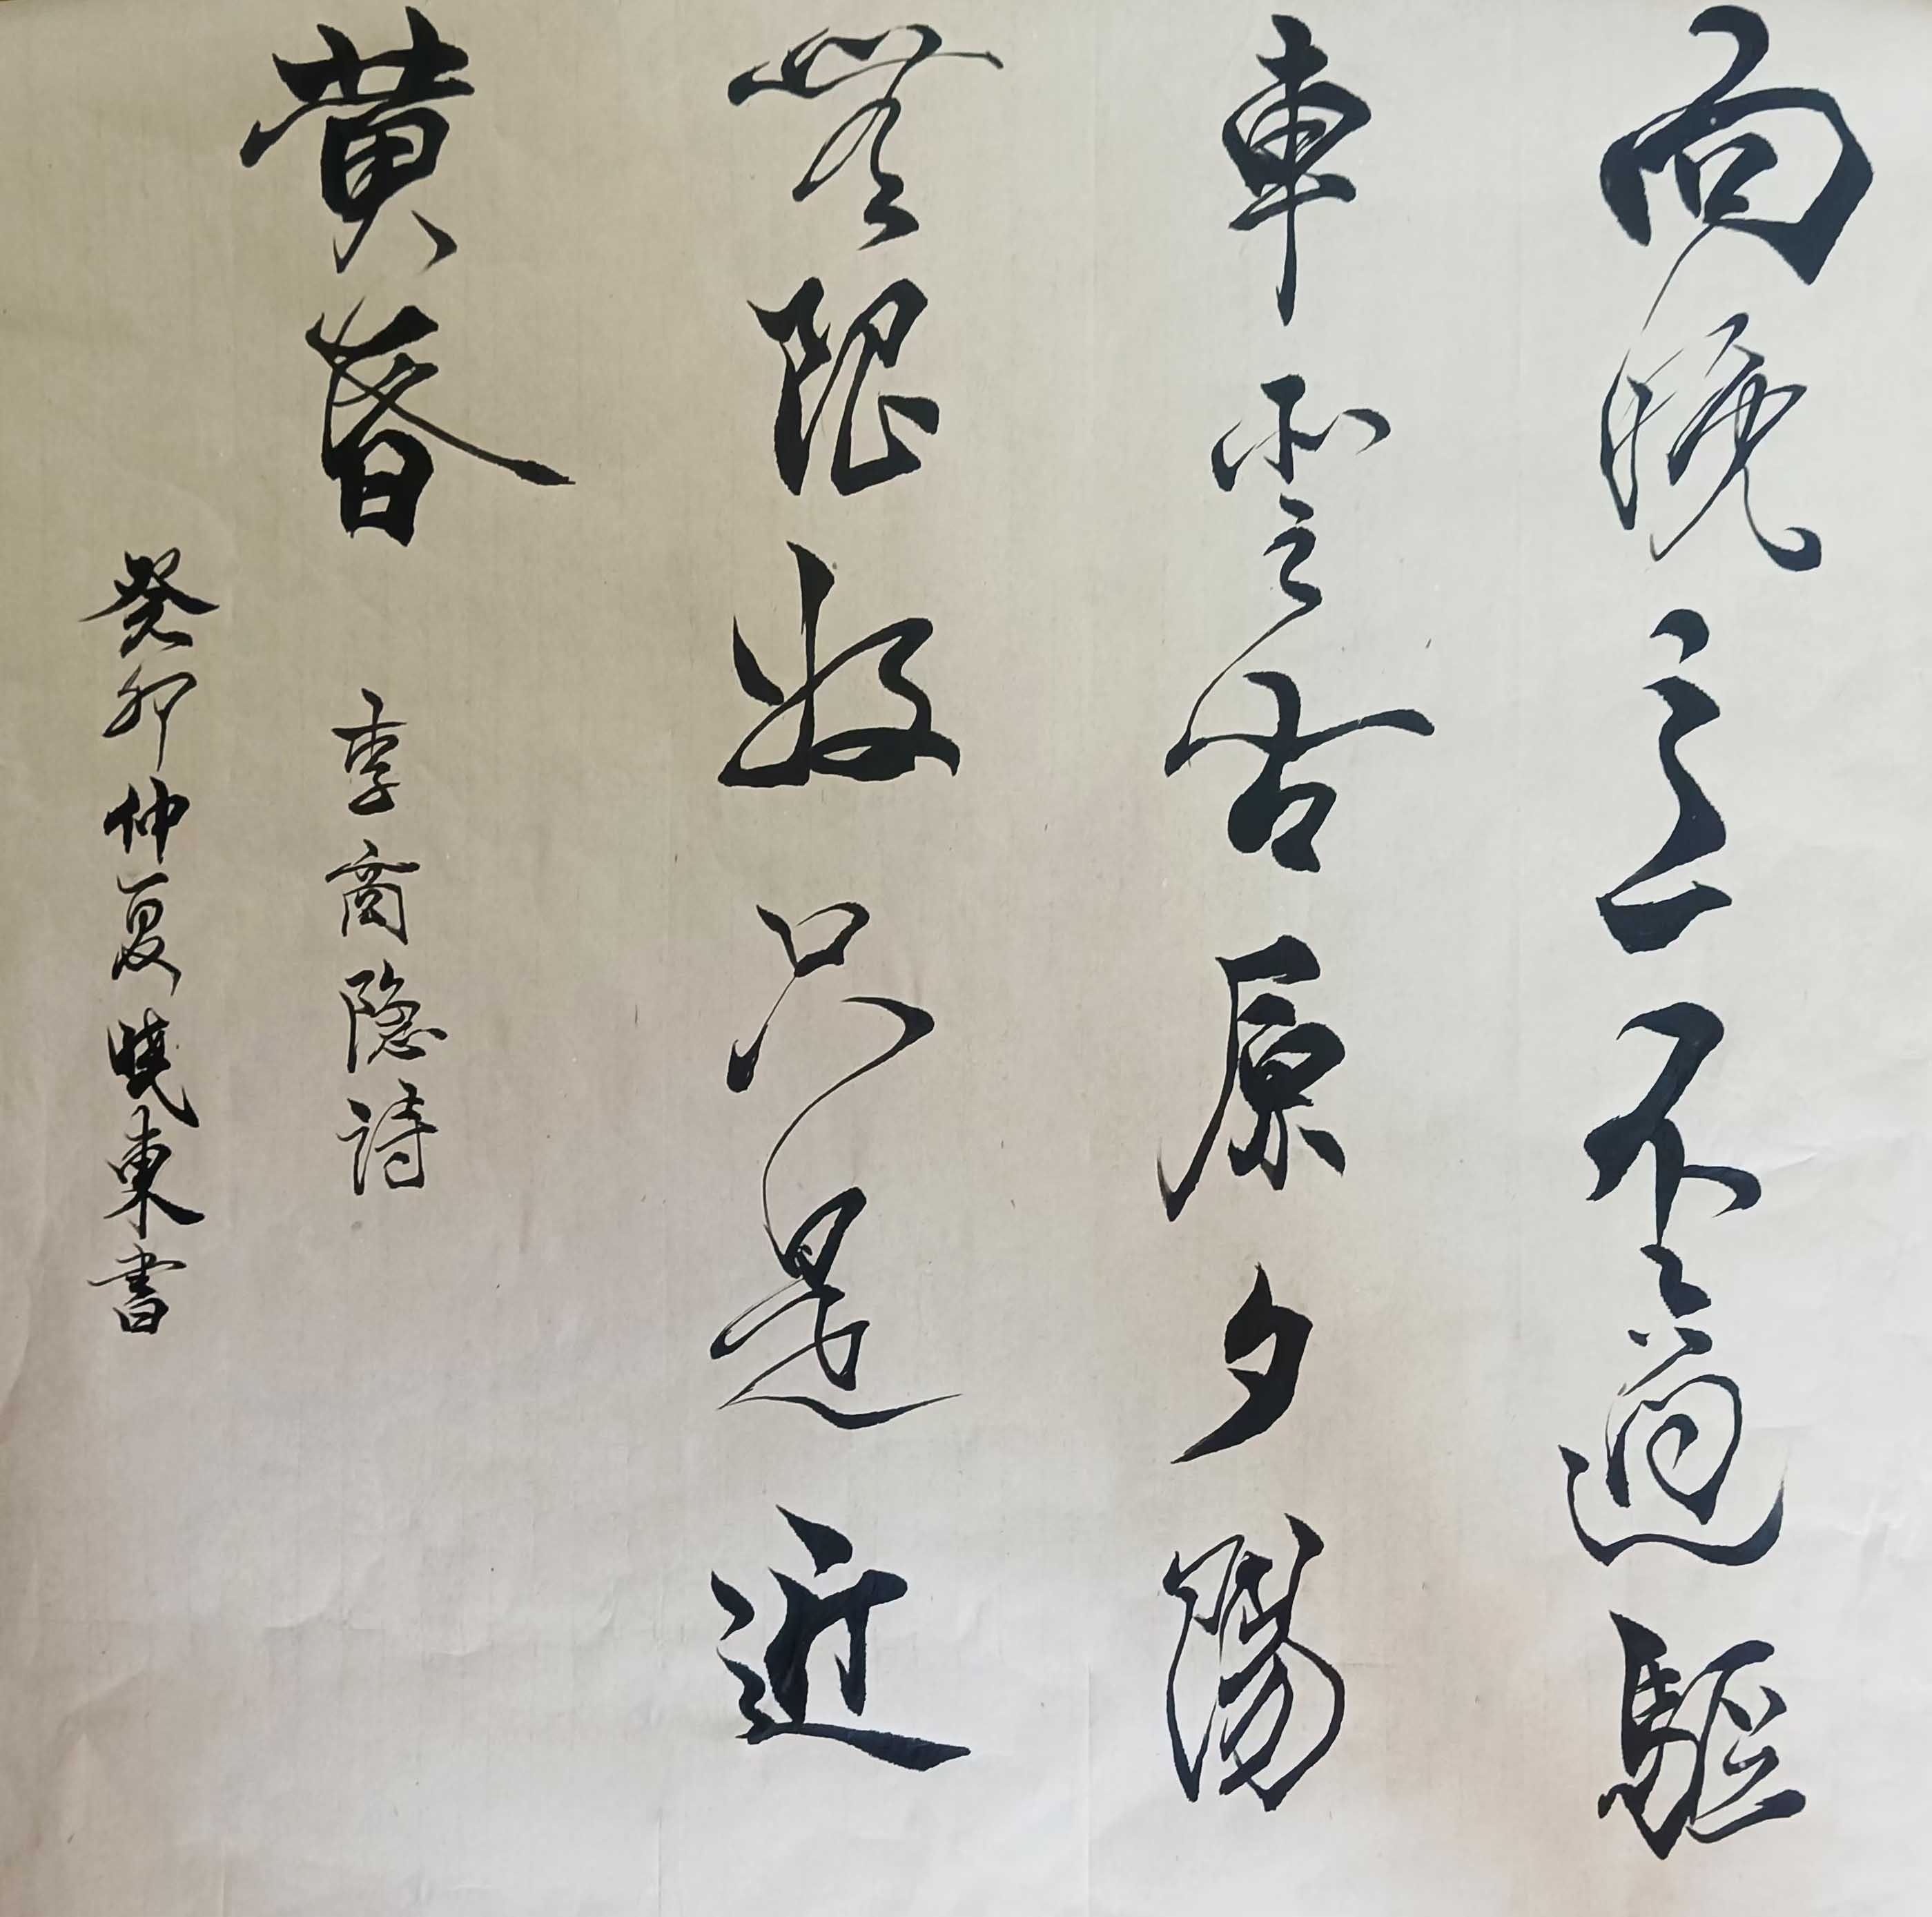 向晚意不適驅
車登古原夕陽
無限好只是近
黄昏 李商隐詩
癸卯仲夏曉東書